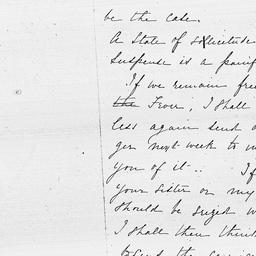 be the case.
A State of solicitude
Suspense is a painf
If we remain free
the Fever, I shall
less again send a
ger next week to in
you of it..  If
your sister or my
should be seized w
I shall then think
to send the carria